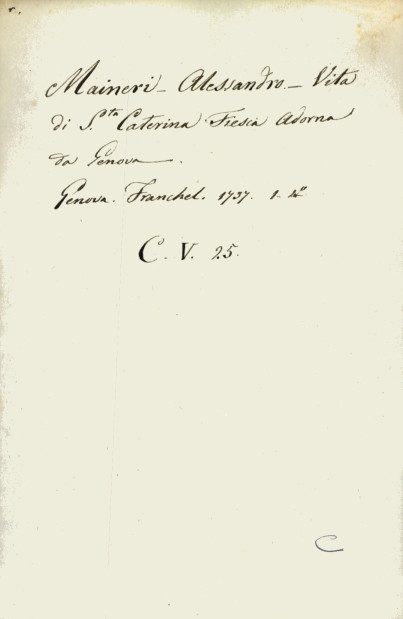 Maineri - Alessandro - Vita
di S.ta Caterina Fiesca Adorna
da Genova.
Genova. Franchel. 1737. 1. 4°
C. V. 25.
C